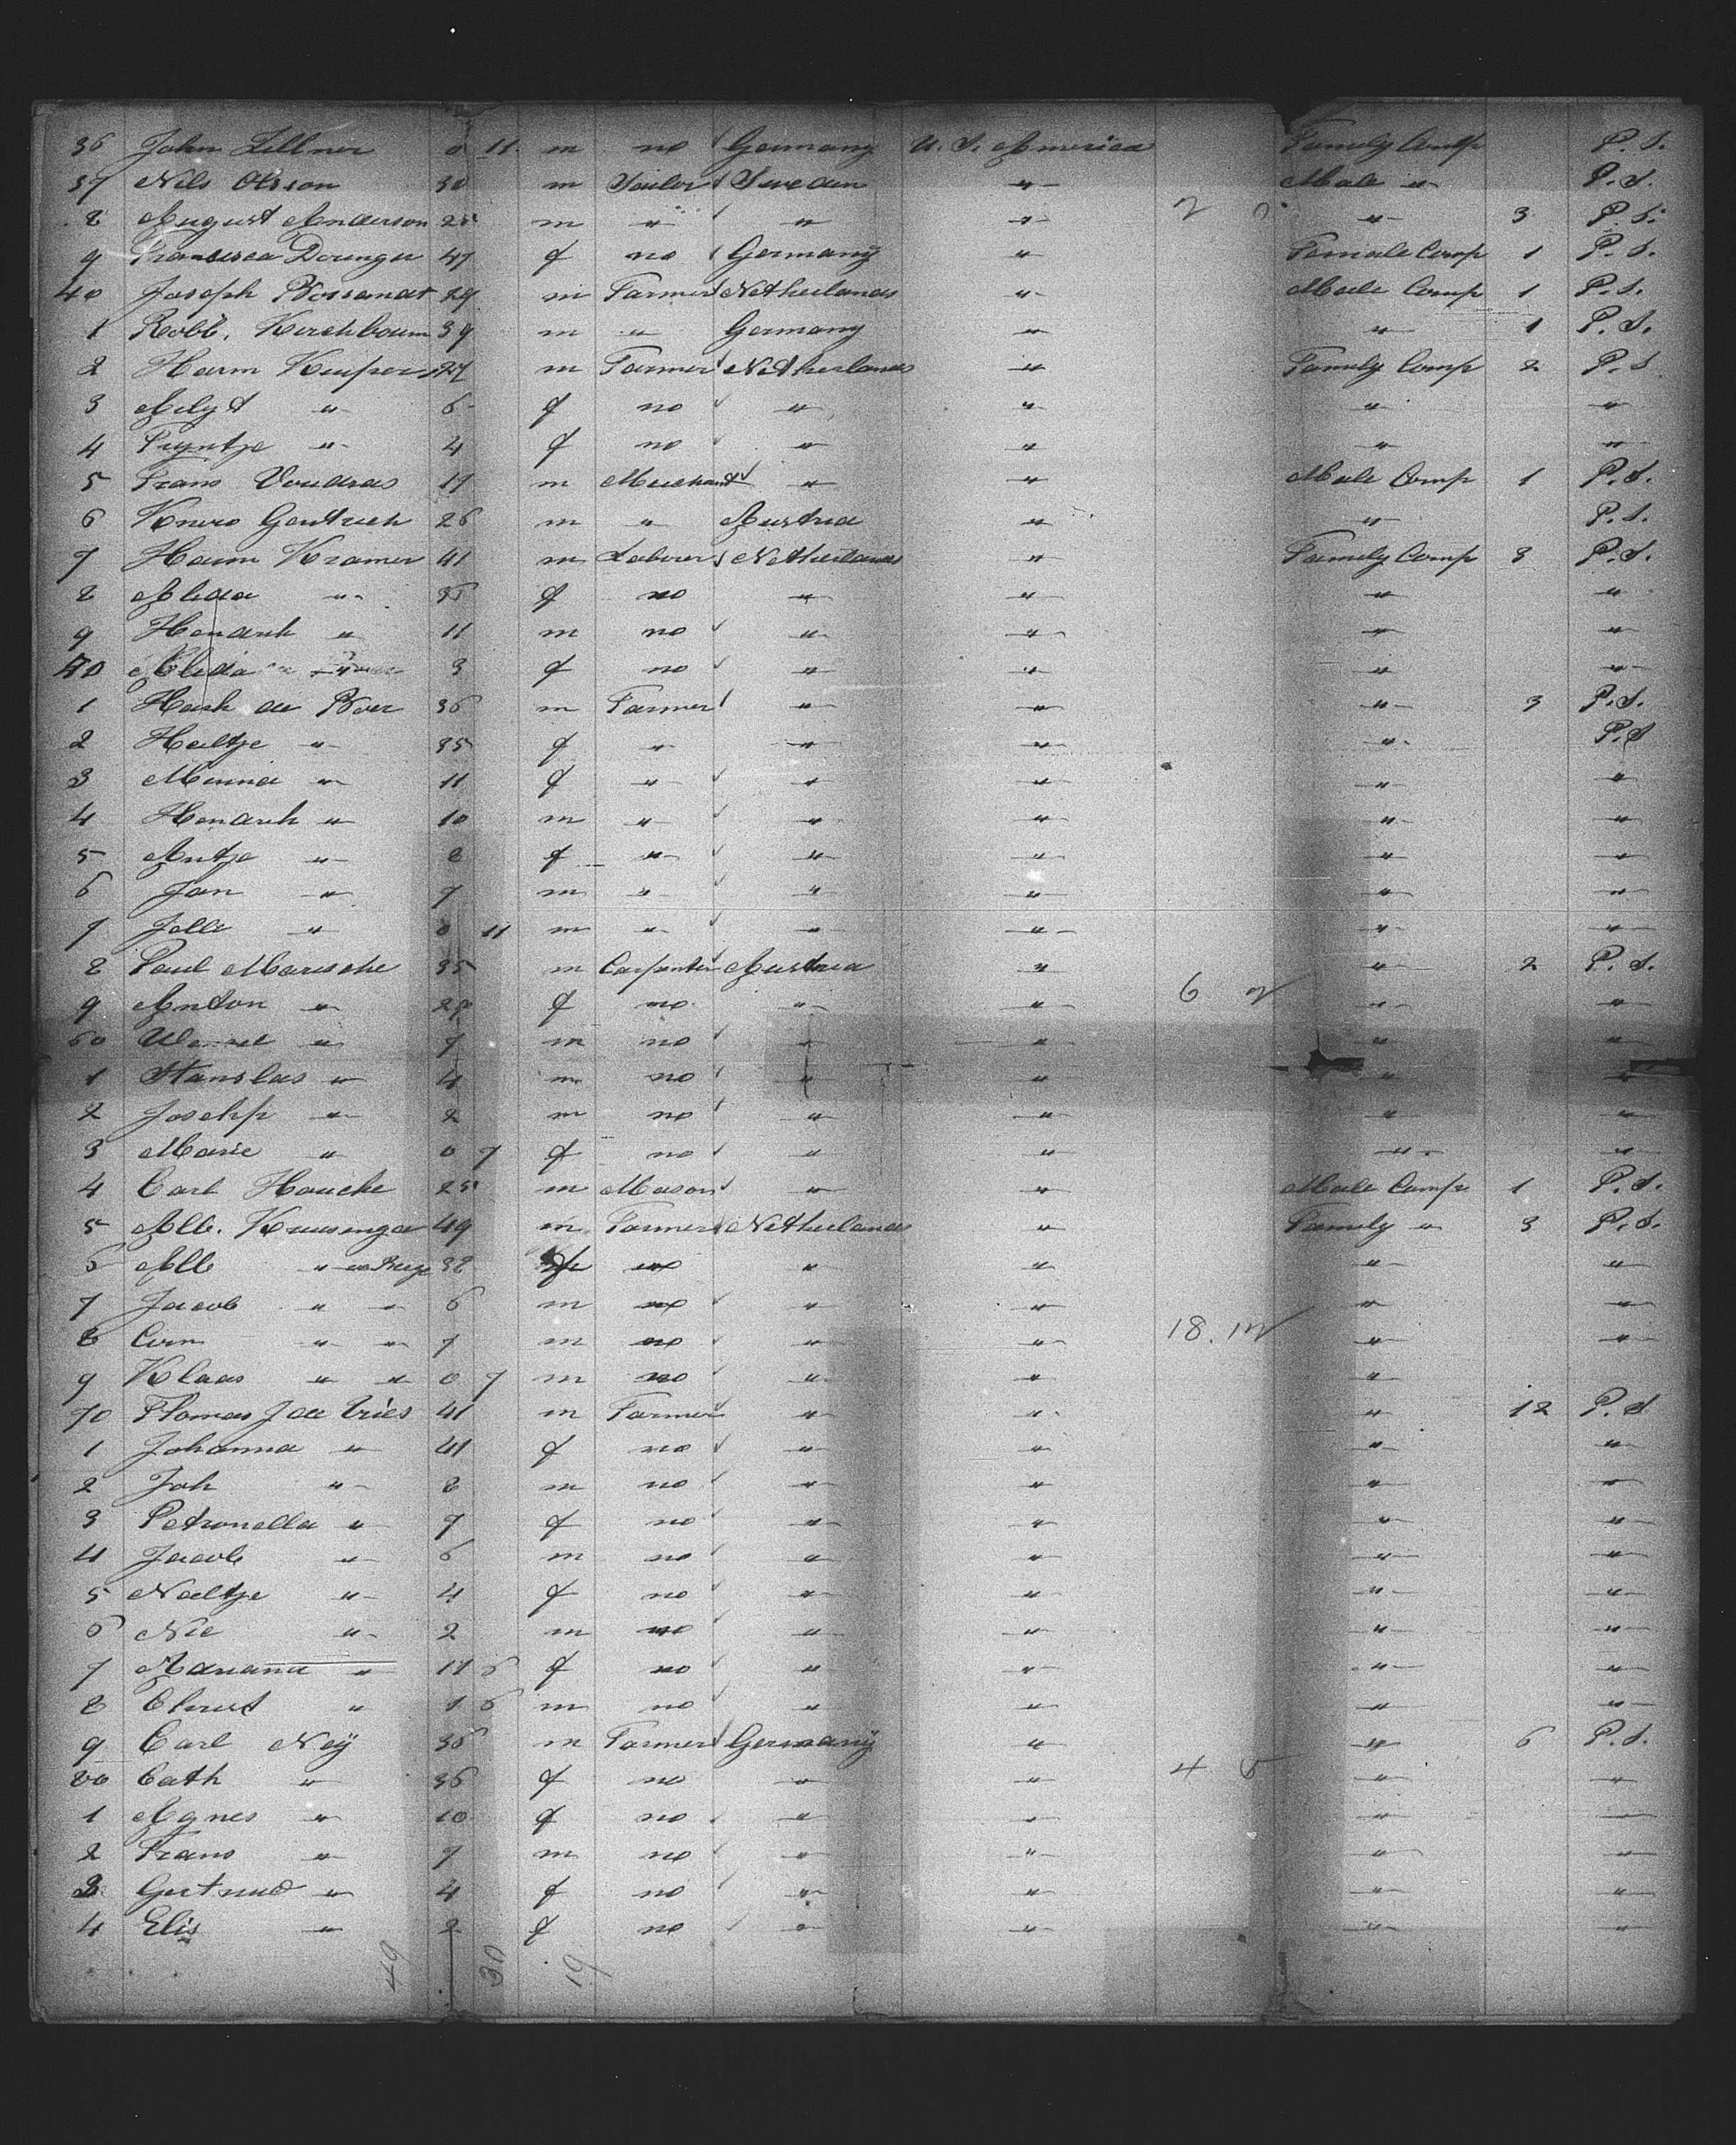 36 John Zellner 0 11 m no Germany U. S. America Family Comp P. S.
37 Nils Olsson 30 m Sailor Sweden " Male " P. S.
8 August Anderson 25 m " " " 2 0 " 3 P. S.
9 Francisca Doringer 47 f no Germany " Female Comp 1 P. S.
40 Joseph 29 m Farmer Netherlands " Male Comp 1 P. S.
1 Robb. Kirchbaum 39 m " Germany " " 1 P. S.
2 Harm Kuiper 27 m Farmer Netherlands " Family Comp 2 P. S
3 " 6 f no " " " "
4 Tryntje " 4 f no " " " "
5 Frans Voudras 17 m Merchant " " Male Comp 1 P. S.
6 26 m " Austria " " P. S.
7 Harm Kramer 41 m Laborer Netherlands " Family Comp 3 P. S.
8 Alida " 35 f no " " " "
9 Hendrik " 11 m no " " " "
Alida " 3 f no " " " "
1 de Boer 36 m Farmer " " " 3 P. S.
2 Heiltje " 35 f " " " " P. S
3 Menna " 11 f " " " " "
4 Hendrik " 10 m " " " " "
5 Antje " 8 f " " " " "
6 Jan " 7 m " " " " "
7 Jelle " 0 11 m " " " " "
8 Paul Marische 35 m Carpenter Austria " " 2 P. S.
9 Anton " 29 f no " " 6 2 " "
60 " 7 m no " " " "
1 Stanslas " 4 m no " " " "
2 Josehp " 2 m no " " " "
3 Marie " 0 7 f no " " " "
4 Carl Hauche 25 m Mason " " Male Comp 1 P. S.
5 Alb. Kruisenga 49 m Farmer Netherlands " Family " 3 P. S.
6 Alb " " 38 f no " " " "
7 Jacob " " 6 m no " " " "
8 Corn " " 7 m no " " 18. 12 " "
9 Klaas " " 0 7 m no " " "
70 Thomas J de Vries 41 m Farmer " " " 12 P. S
1 Johanna " 41 f no " " " "
2 Joh " 8 m no " " " "
3 Petronella " 7 f no " " " "
4 Jacob " 6 m no " " " "
5 Neeltje " 4 f no " " " "
6 Nic " 2 m no " " " "
7 Adriana " 6 f no " " " "
8 " 1 6 m no " " " "
9 Carl Neÿ 36 m Farmer Germany " " 6 P. S.
80 Cath " 36 f no " " 4 5 " "
1 Agnes " 10 f no " " "
2 Frans " 7 m no " " " "
3 Gertrud " 4 f no " " " "
4 Elis " 2 f no " " " "
49 30 19